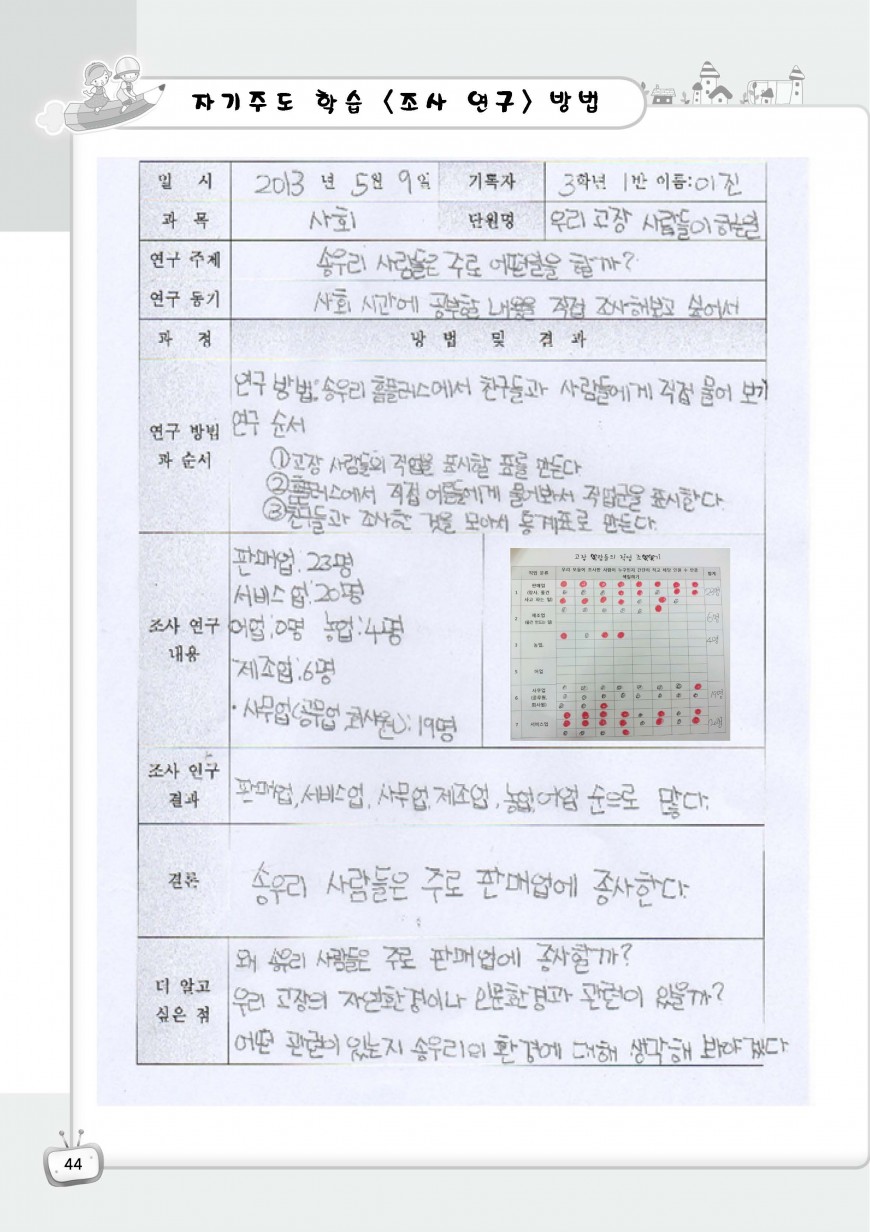 자기주도 학습 <조사 연구> 방법
일 시 2013 년 5월 9일 기록자 3학년 1반 이름:이진
과 목 사회 단원명 우리 고장 사람들이 하는일
연구 주제 송우리 사람들은 주로 어떤일을 할까?
연구 동기 사회 시간에 공부할 내용을 직접 조사해보고 싶어서
과 정 방 법 및 결 과
연구 방법
과 순서
연구 방법:송우리 홈플러스에서 친구들과 사람들에게 직접 물어 보기
연구 순서
①고장 사람들의 직업을 표시할 표를 만든다
②홈플러스에서 직접 어른들에게 물어봐서 직업군을 표시한다.
③친구들과 조사한 것을 모아서 통계표로 만든다.
조사 연구
내용
판매업:23명
서비스업:20명
어업:0명 농업:4명
제조업:6명
·사무업(공무업,회사원):19명
고장 사람들의 직업
직업 분류
합계
1 판매업
제조업
6명
3 농업
4명
5 어업
6 사무업
19명
7 서비스업
조사 연구
결과
판매업,서비스업, 사무업,제조업, 농업,어업 순으로 많다.
결론
송우리 사람들은 주로 판매업에 종사한다.
더 알고
싶은 점
왜 송우리 사람들은 주로 판매업에 종사할까?
우리 고장의 자연환경이나 인문환경과 관련이 있을까?
어떤 관련이 있는지 송우리의 환경에 대해 생각해 봐야겠다
44